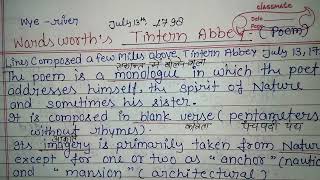 Wye - river July 13th 1798
classmate
Date
Page
Wordsworth's Tintern Abbey :- (Poem)
Lines Composed a few Miles above Tintern Abbey July 13, 17
The poem is a monologue in which the poet
addresses himself, the spirit of Nature
and sometimes his sister.
It is composed in blank verse (pentameters
without rhymes).
Its imagery is primarily taken from Nature
except for one or two as "anchor" (nautic
and "mansion" (architectural)